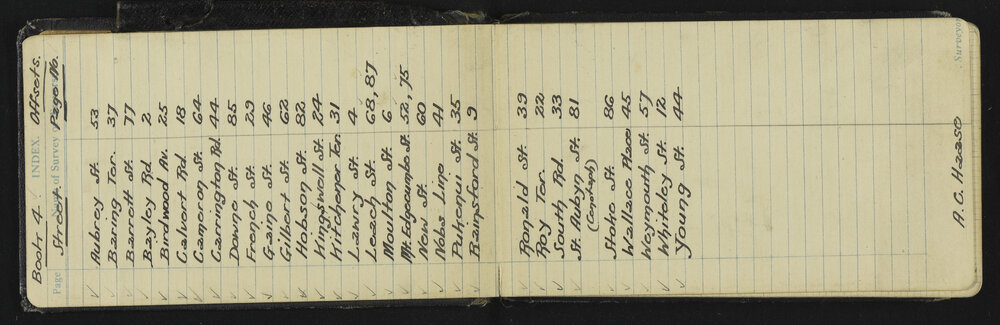 Book 4. INDEX. Offsets.
Page Street. of Survey Page No.
Aubrey St. 53
Baring Ter. 37
Barrett St. 77
Bayley Rd. 2
Birdwood Av. 25
Calvert Rd. 18
Cameron St. 64
Carrington Rd. 44
Downe St. 85
French St. 29
Gaine St. 46
Gilbert St. 62
Hobson St. 82
Kingswell St. 24
Kitchener Ter. 31
Lawry St. 4
Leach St. 68, 87
Moulton St. 6
Mt. Edgecumbe St. 52, 75
New St. 60
Nobs Line 41
Pukenui St. 35
Rainsford St. 9
Ronald St. 39
Roy Ter. 22
South Rd. 33
St. Aubyn St. 81
(Cenotaph)
Stoke St. 86
Wallace Place 45
Weymouth St. 57
Whiteley St. 12
Young St. 44
Surveyor